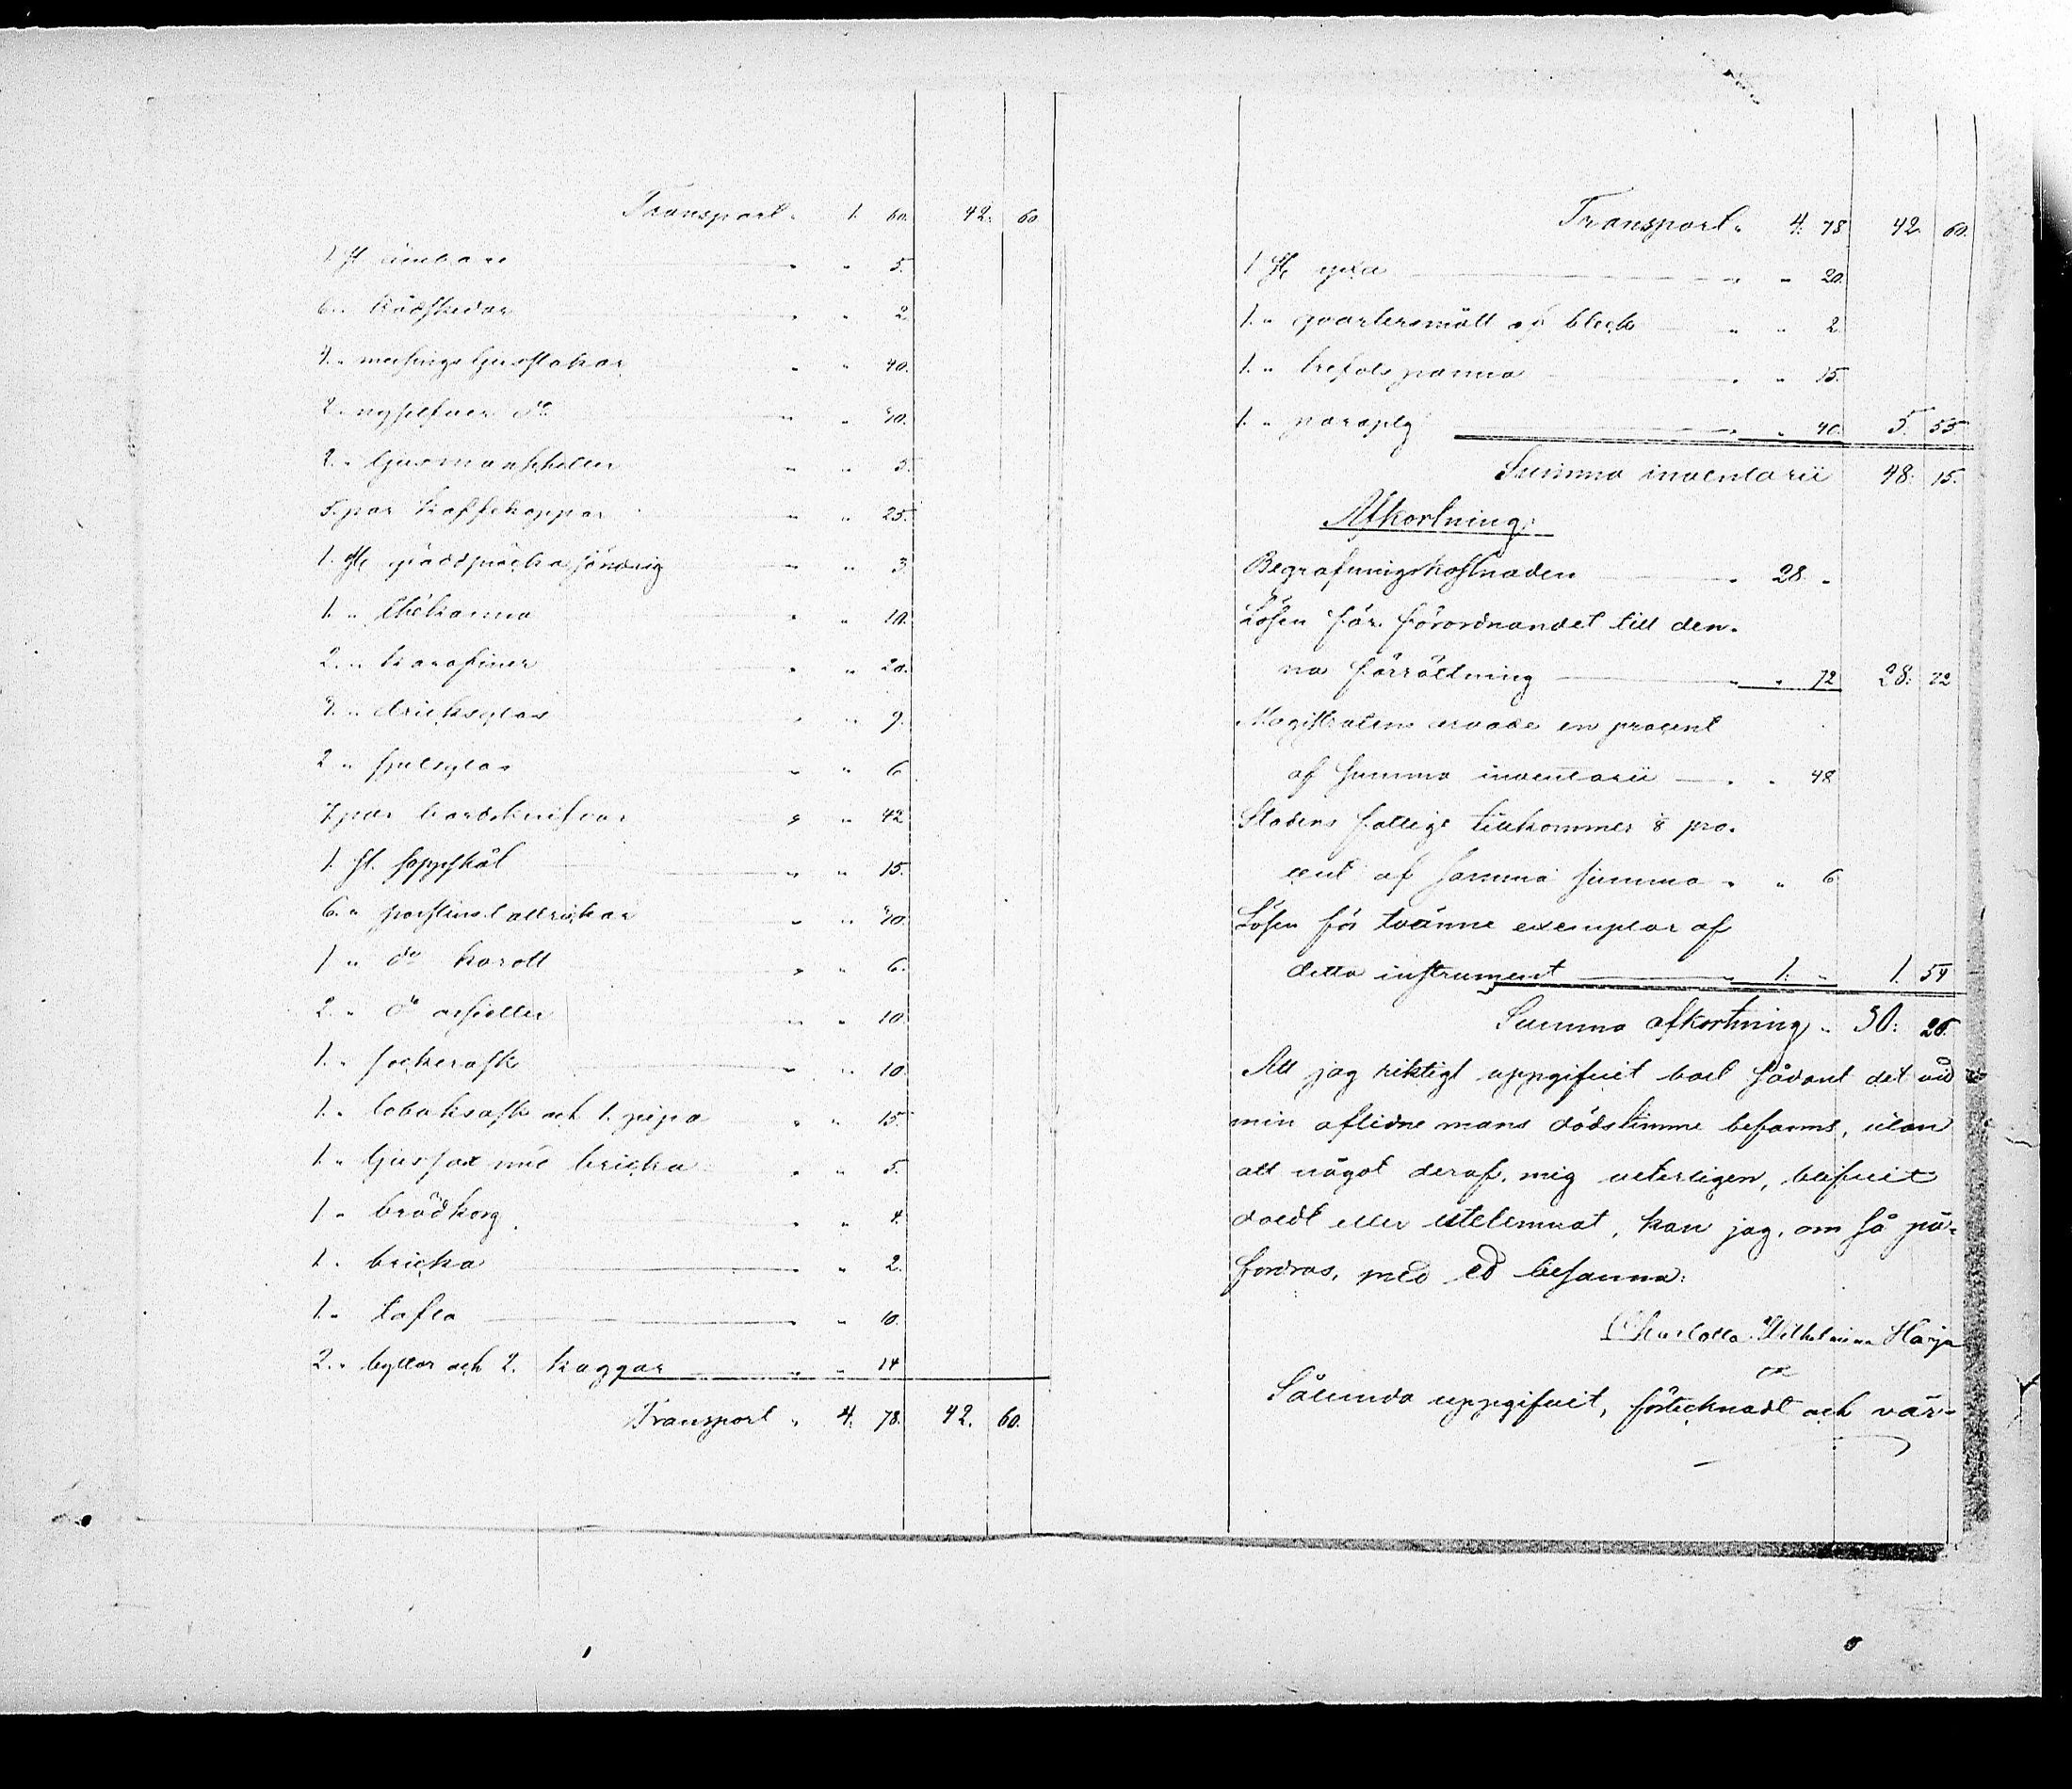 Transport „ 1. 60. 42. 60
1 st ämbare „ „ 5.
6. „ trädskedar „ „ 2.
4. „ messings ljusstakar „ „ 40.
2 „ nysilfver do „ „
2. „ ljusmanschetter „ „ 5.
5. par kaffekoppar „ „ 25.
1. st gräddsnäcka söndrig „ „ 3
1. „ thékanna „ „ 10.
2. „ karafiner „ „ 20.
„ dricksglas „ „ 9.
2 „ spetsglas „ „ 6
7 par bordsknifvar „ „ 42
1. st. soppskål „ „ 15.
6. „ porslins tallrickar „ „
1 „ do karott „ „ 6.
2. „ do assietter „ „ 10
1. „ sockerask „ „ 10
1. „ tobaksask och 1. pipa „ „ 15.
1. „ ljussax med bricka „ „ 5.
1 „ brödkorg „ „ 4.
1. „ bricka „ „ 2.
1. „ tafla „ „ 10.
2. „ byttor och 2. kaggar „ „ 14
Transport „ 4. 78. 42. 60.
Transport „ 4. 78 42. 60.
1 st yxa „ „ 20.
1. „ qvartersmått af bleck „ „ 2
1. „ trefots panna „ „ 15.
1. „ paraply „ „ 40. 5. 55
Summa inventarii 48. 15.
Afkortning:
Begrafningskostnaden „ 28. „
Lösen för förordnandet till den-
na förrättning „ „ 72 28. 72
Magistratens arvode en procent
af summa inventarii „ „ 48
Stadens fattige tillkommer ⅛ pro-
cent af samma summa „ „ 6
Lösen för tvänne exemplar af
detta instrument „ 1. „ 1. 54
Summa afkortning „ 30: 26.
Att jag riktigt uppgifvit boet sådant det vid
min aflidne mans dödstimme befanns, utan
att något deraf, mig veterligen, blifvit
doldt eller utelemnat, kan jag, om så på-
fordras, med ed besanna:
Charlotta Wilhelmina Harju
Sålunda uppgifvit, förtecknadt och vär-